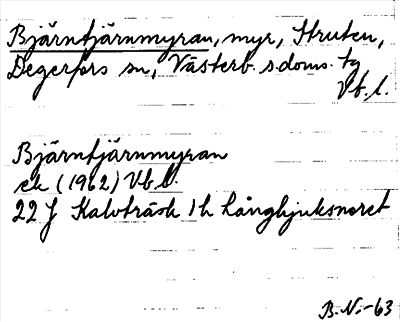 Bjärntjärnmyran, myr, Struten,
Degerfors sn, Västerb. s. doms. tg
Vb. l.
Bjärntjärnmyran
ek (1962) Vb. l.
22 J Kalvträsk 1 h Långhjuksnoret
B.N.-63